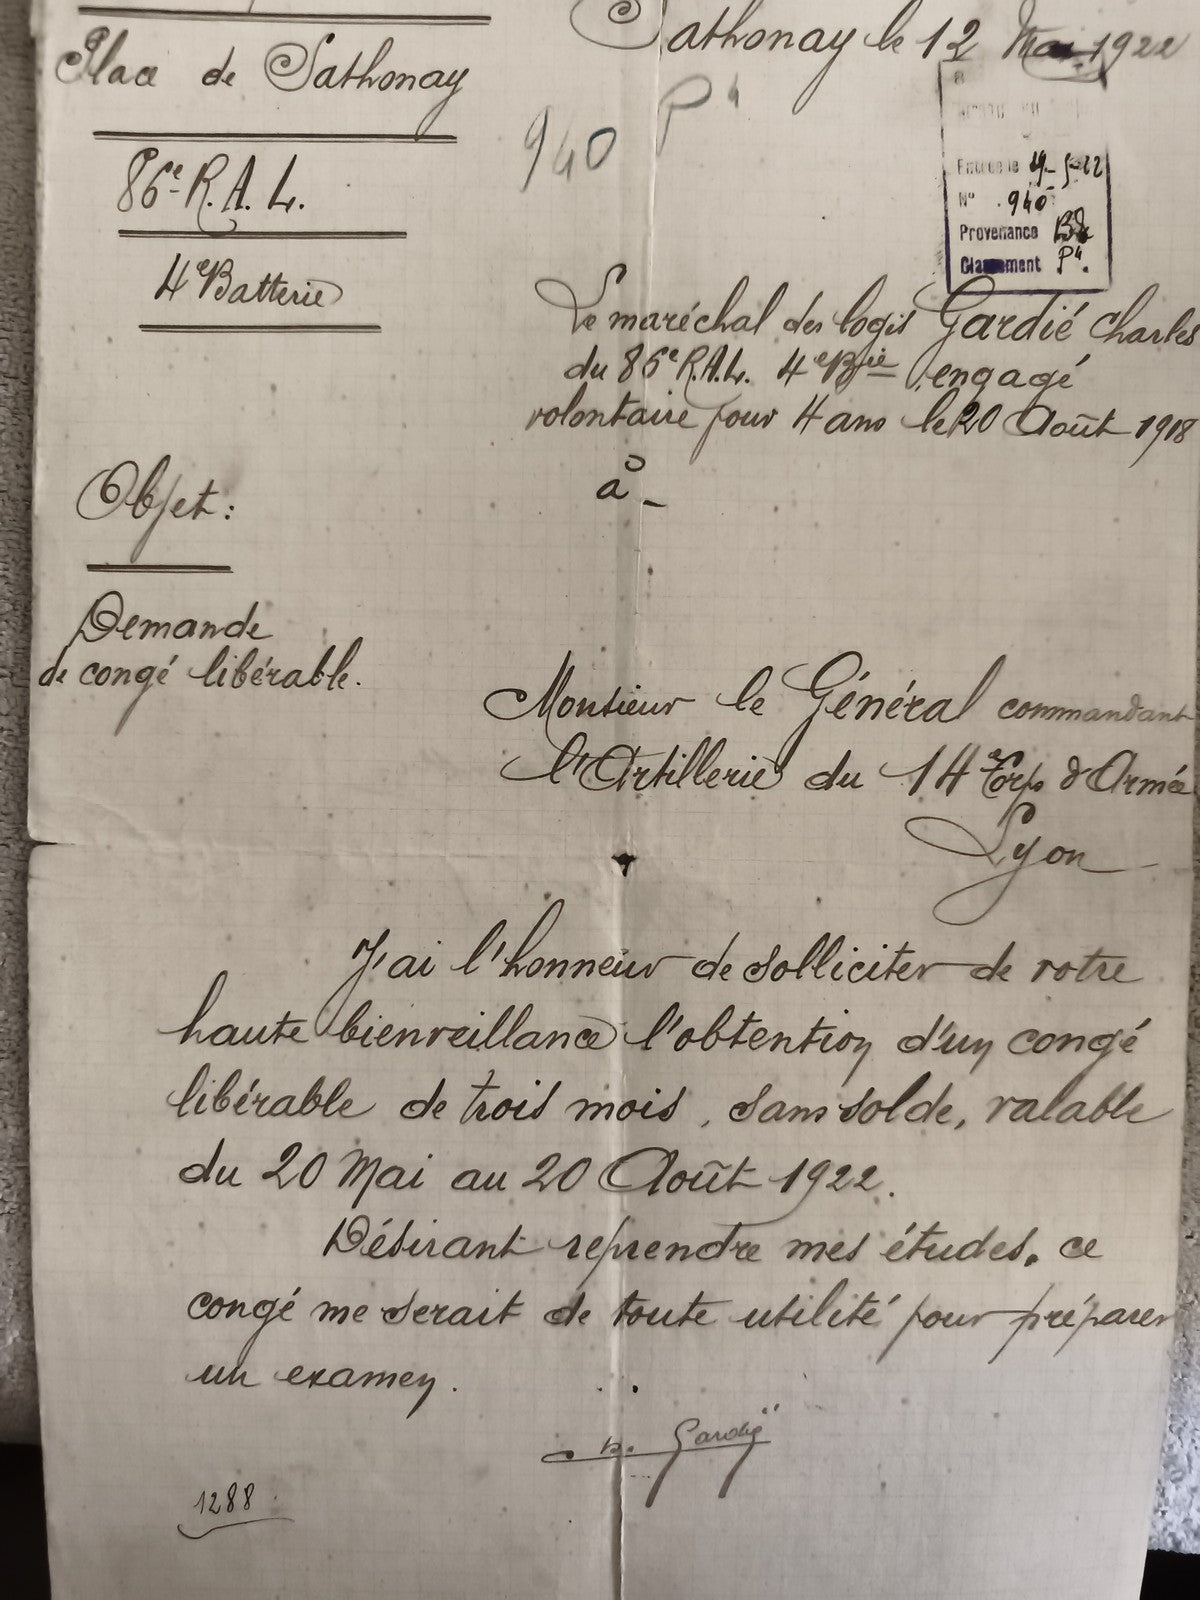 Place de Sathonay
86e R.A.L.
4e Batterie
Sathonay le 12 Mai 1922
940 Pel
Entrée le 19-5-22
N° 940
Provenance
Classement Pel.
Le maréchal des logis Gardié Charles
du 86e R.A.L. 4e Bie engagé
volontaire pour 4 ans le 20 Août 1918
à
Objet:
Demande
de congé libérable.
Monsieur le Général commandant
l'Artillerie du 14e Corps d'Armée
Lyon
J'ai l'honneur de solliciter de votre
haute bienveillance l'obtention d'un congé
libérable de trois mois, sans solde, valable
du 20 Mai au 20 Août 1922.
Désirant reprendre mes études, ce
congé me serait de toute utilité pour préparer
un examen.
Gardié
1288